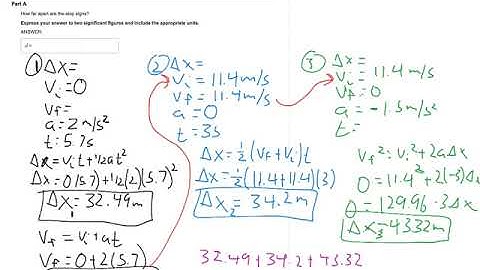 Part A
How far apart are the stop signs?
Express your answer to two significant figures and include the appropriate units.
ANSWER:
d =
① Δx=
Vi=0
Vf=
a=2 m/s²
t=5.7s
Δx=Vit+½at²
Δx=0(5.7)+½(2)(5.7)²
Δx₁=32.49m
Vf=Vi+at
Vf=0+2(5.7)
② Δx=
Vi=11.4m/s
Vf=11.4m/s
a=0
t=3s
Δx=½(Vf+Vi)t
Δx=½(11.4+11.4)(3)
Δx₂=34.2m
③ Δx=
Vi=11.4m/s
Vf=0
a=-1.5m/s²
t=
Vf²=Vi²+2aΔx
0=11.4²+2(-3)Δx
0=129.96-3Δx
Δx₃=43.32m
32.49+34.2+43.32